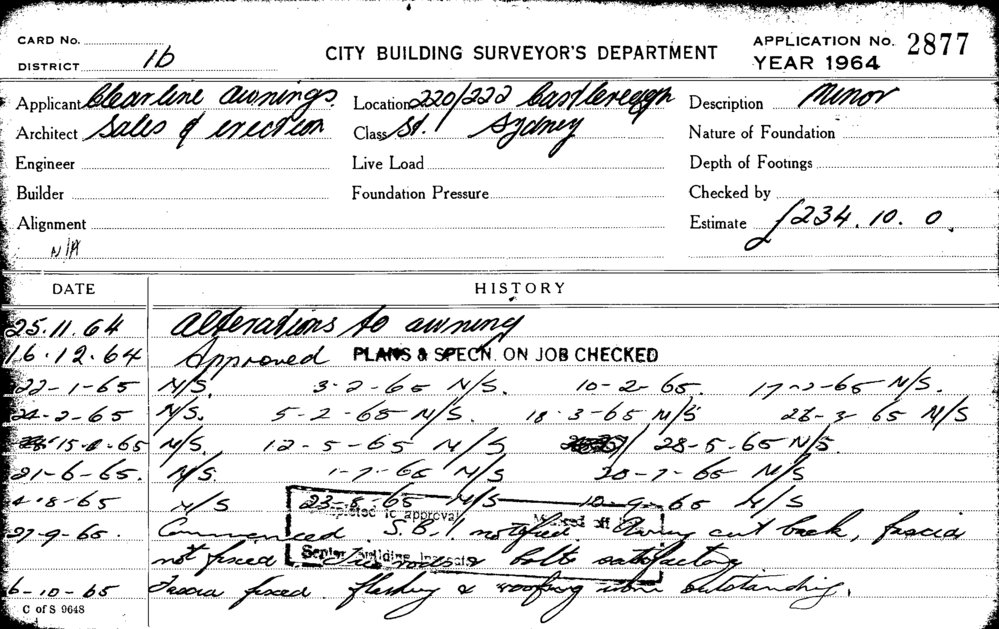 CARD No.
DISTRICT 1b
CITY BUILDING SURVEYOR'S DEPARTMENT
APPLICATION No. 2877
YEAR 1964
Applicant Clearline awnings Location 220/222 Castlereagh Description Minor
Architect Sales & erection Class St. Sydney Nature of Foundation
Engineer Live Load Depth of Footings
Builder Foundation Pressure Checked by
Alignment Estimate £234.10.0.
N/A
DATE HISTORY
25.11.64 Alterations to awning
16.12.64 Approved PLANS & SPECN. ON JOB CHECKED
22-1-65 N/S. 3-2-65 N/S. 10-2-65. 17-2-65 N/S.
24-2-65 N/S. 5-2-65 N/S. 18-3-65 N/S 26-3 65 N/S
15-4-65 N/S. 12-5-65 N/S 28-5-65 N/S.
21-6-65. N/S. 1-7-65 N/S 20-7-65 N/S
4-8-65 N/S 23-8-65 N/S 10-9-65 N/S
Completed to approval Marked off
27-9-65. Commenced. S.B.I. notified. Awning cut back, fascia
Senior Building Inspector
not fixed. Tie rods & bolts satisfactory
6-10-65 Fascia fixed. flashing & roofing iron outstanding.
C of S 9648